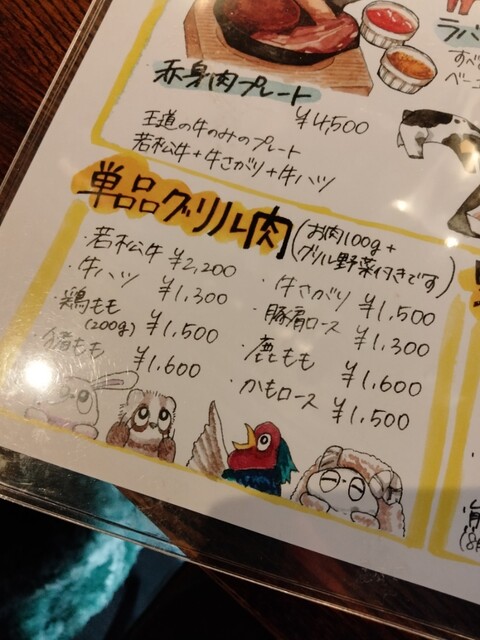 赤身肉プレート
¥4,500
王道の牛のみのプレート
若松牛+牛さがり+牛ハツ
ラバ
すべ
ベーコ
単品グリル肉
(お肉100g+
グリル野菜付きです)
・若松牛 ¥2,200
・牛ハツ ¥1,300
・鶏もも
(200g) ¥1,500
・猪もも ¥1,600
・牛さがり ¥1,500
・豚肩ロース ¥1,300
・鹿もも ¥1,600
・かもロース ¥1,500